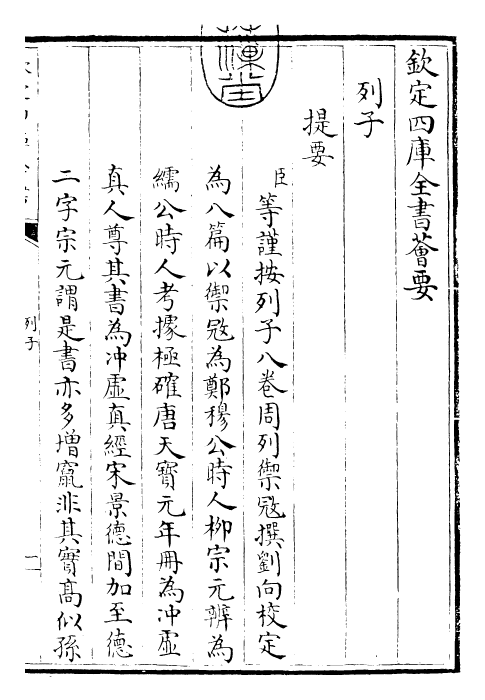 欽定四庫全書薈要
列子
提要
臣等謹按列子八卷周列禦寇撰劉向校定
為八篇以禦寇為鄭穆公時人柳宗元辨為
繻公時人考據極確唐天寶元年冊為冲虛
真人尊其書為冲虛真經宋景德間加至德
二字宗元謂是書亦多增竄非其實高似孫
列子
一